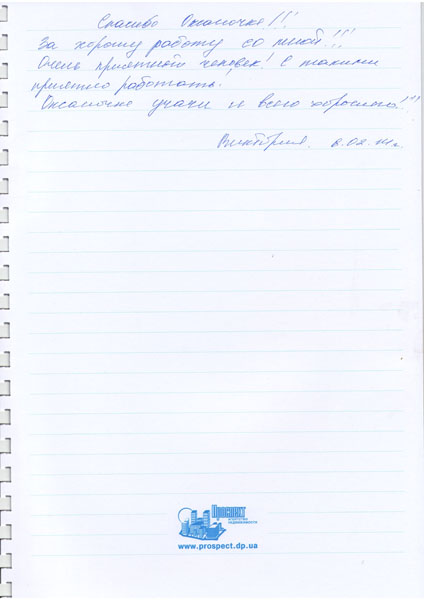 Спасибо Оксаночке!!!
За хорошую работу со мной!!!
Очень приятный человек! С такими
приятно работать!
Оксаночке удачи и всего хорошего!!!
Виктория. 8.02.14г.
Проспект
АГЕНТСТВО
НЕДВИЖИМОСТИ
www.prospect.dp.ua